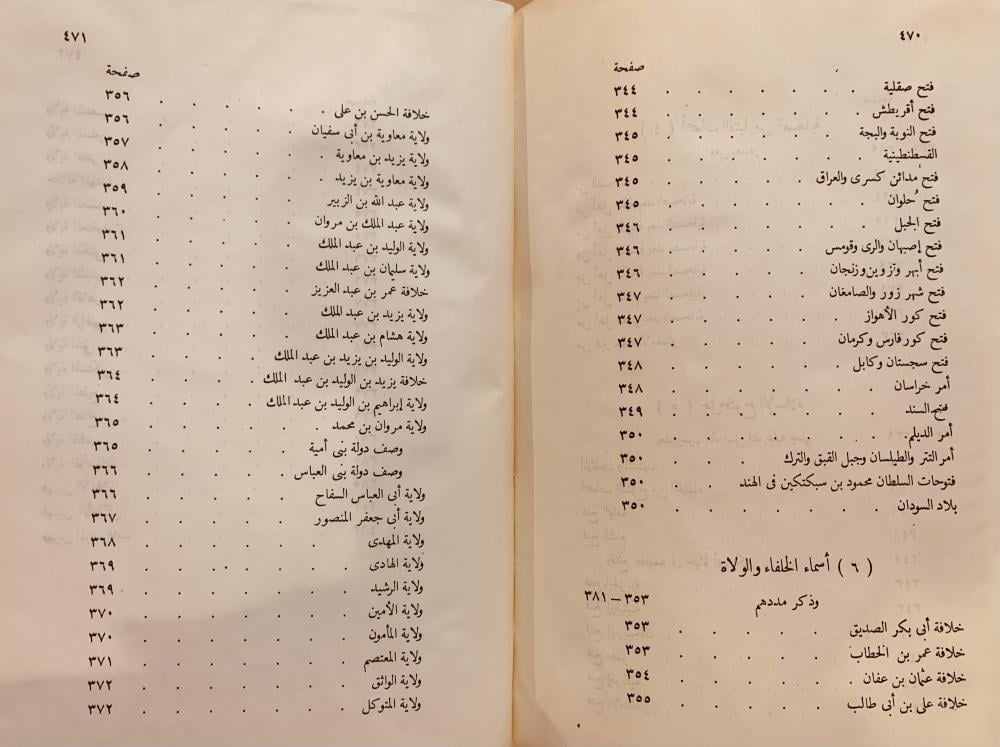 ٤٧٠
صفحة
فتح صقلية . . . . . . . ٣٤٤
فتح أقريطش . . . . . . . ٣٤٤
فتح النوبة والبجة . . . . . . ٣٤٥
القسطنطينية . . . . . . ٣٤٥
فتح مدائن كسرى والعراق . . . . . ٣٤٥
فتح حُلوان . . . . . . . ٣٤٥
فتح الجبل . . . . . . . ٣٤٦
فتح إصبهان والرى وقومس . . . . . ٣٤٦
فتح أبهر وتزوين وزنجان . . . . . ٣٤٦
فتح شهر زور والصامغان . . . . . ٣٤٧
فتح كور الأهواز . . . . . . ٣٤٧
فتح كور فارس وكرمان . . . . . ٣٤٧
فتح سجستان وكابل . . . . . . ٣٤٨
أمر خراسان . . . . . . . ٣٤٨
فتح السند . . . . . . . ٣٤٩
أمر الديلم . . . . . . . ٣٥٠
أمر التتر والطيلسان وجبل القبق والترك . . . ٣٥٠
فتوحات السلطان محمود بن سبكتكين فى الهند . . ٣٥٠
بلاد السودان . . . . . . . ٣٥٠
( ٦ ) أسماء الخلفاء والولاة
وذكر مددهم ٣٥٣ – ٣٨١
خلافة أبى بكر الصديق . . . . . ٣٥٣
خلافة عمر بن الخطاب . . . . . ٣٥٣
خلافة عثمان بن عفان . . . . . ٣٥٤
خلافة على بن أبى طالب . . . . . ٣٥٥
٤٧١
صفحة
خلافة الحسن بن على . . . . . . ٣٥٦
ولاية معاوية بن أبى سفيان . . . . . ٣٥٦
ولاية يزيد بن معاوية . . . . . . ٣٥٧
ولاية معاوية بن يزيد . . . . . . ٣٥٨
ولاية عبد الله بن الزبير . . . . . ٣٥٩
ولاية عبد الملك بن مروان . . . . . ٣٦٠
ولاية الوليد بن عبد الملك . . . . . ٣٦١
ولاية سليمان بن عبد الملك . . . . . ٣٦١
خلافة عمر بن عبد العزيز . . . . . ٣٦٢
ولاية يزيد بن عبد الملك . . . . . ٣٦٢
ولاية هشام بن عبد الملك . . . . . ٣٦٣
ولاية الوليد بن يزيد بن عبد الملك . . . . ٣٦٣
خلافة يزيد بن الوليد بن عبد الملك . . . . ٣٦٤
ولاية إبراهيم بن الوليد بن عبد الملك . . . . ٣٦٤
ولاية مروان بن محمد . . . . . . ٣٦٥
وصف دولة بنى أمية . . . . . ٣٦٥
وصف دولة بنى العباس . . . . . ٣٦٦
ولاية أبى العباس السفاح . . . . . ٣٦٦
ولاية أبى جعفر المنصور . . . . . ٣٦٧
ولاية المهدى . . . . . . . ٣٦٨
ولاية الهادى . . . . . . . ٣٦٩
ولاية الرشيد . . . . . . . ٣٦٩
ولاية الأمين . . . . . . . ٣٧٠
ولاية المأمون . . . . . . . ٣٧٠
ولاية المعتصم . . . . . . . ٣٧١
ولاية الواثق . . . . . . . ٣٧٢
ولاية المتوكل . . . . . . . ٣٧٢